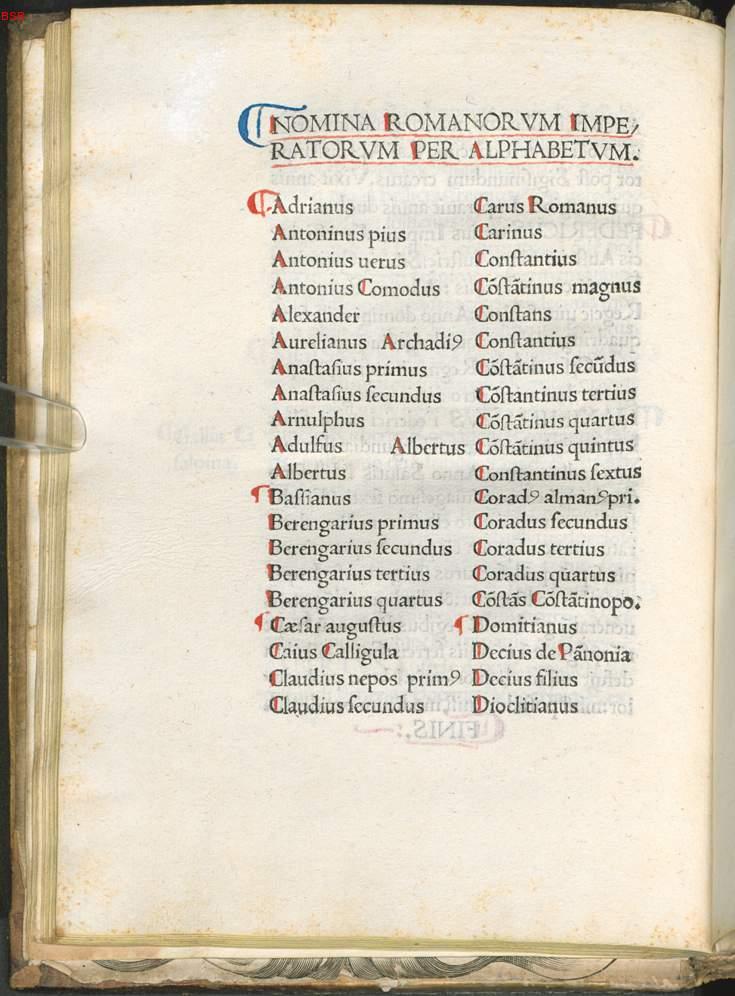 BSB
NOMINA ROMANORVM IMPE,
RATORVM PER ALPHABETVM.
Adrianus
Antoninus pius
Antonius uerus
Antonius Comodus
Alexander
Aurelianus Archadiꝰ
Anaſtaſius primus
Anaſtaſius ſecundus
Arnulphus
Adulfus Albertus
Albertus
Baſſianus
Berengarius primus
Berengarius ſecundus
Berengarius tertius
Berengarius quartus
Cæſar auguſtus
Caius Calligula
Claudius nepos primꝰ
Claudius ſecundus
Carus Romanus
Carinus
Conſtantius
Cõſtãtinus magnus
Conſtans
Conſtantius
Cõſtãtinus ſecũdus
Cõſtantinus tertius
Cõſtãtinus quartus
Cõſtãtinus quintus
Conſtantinus ſextus
Coradꝰ almanꝰpri.
Coradus ſecundus
Coradus tertius
Coradus quartus
Cõſtãs Cõſtãtinopo.
Domitianus
Decius de Pãnonia
Decius filius
Dioclitianus